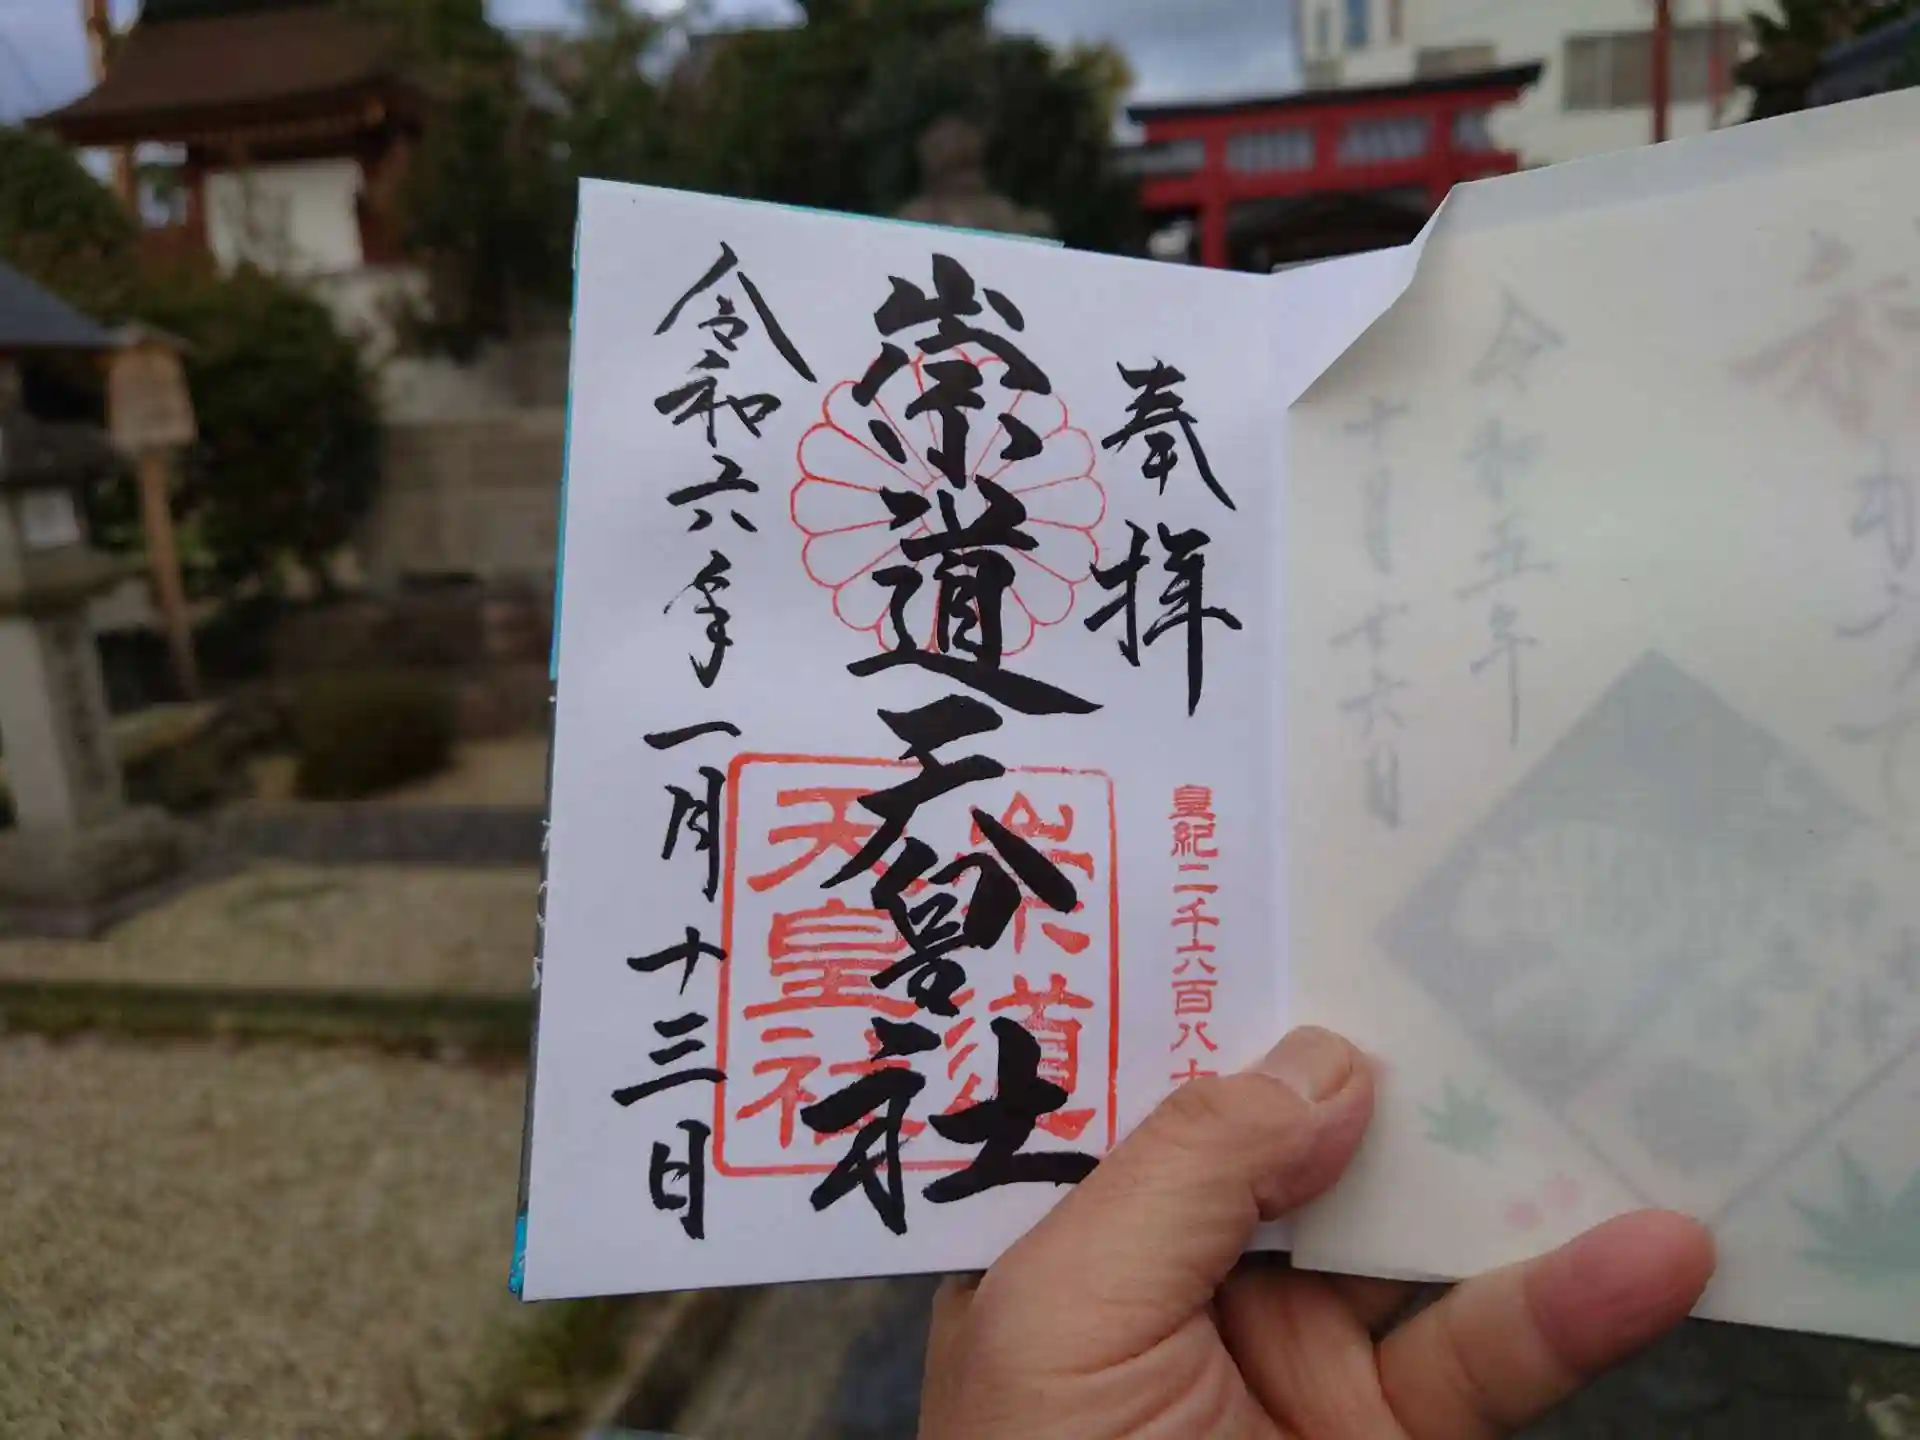 奉拝
皇紀二千六百八十
崇道天皇社
崇道
天皇社
令和六年一月十三日
令和五年
十月廿六日